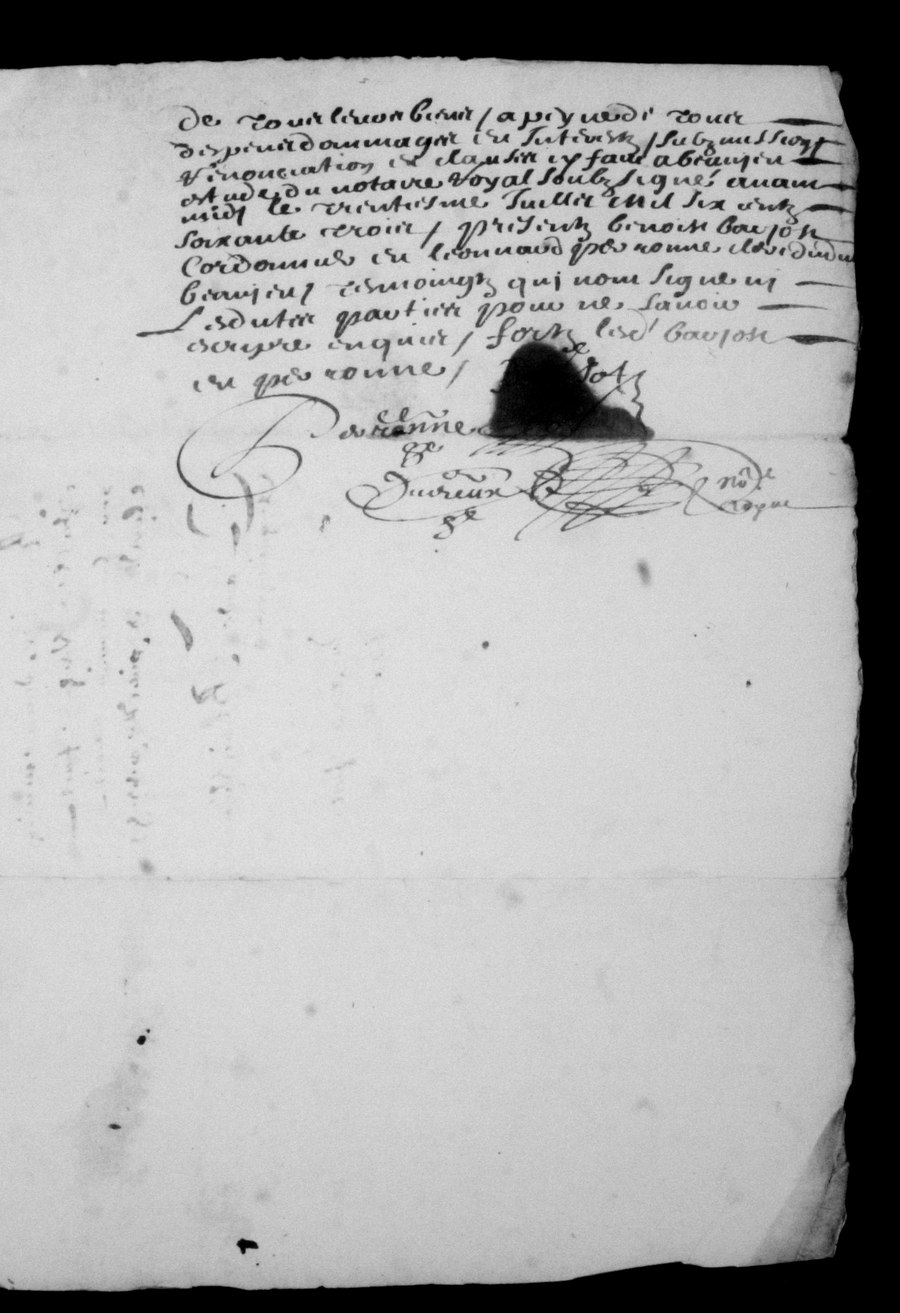 de tous leurs biens / a peyne de tous
despens dommages et Interestz / submissions
renonciation et clauses / faict a beaujeu
estude du notaire royal soubzsigné avant
midy le trentiesme Juillet mil six centz
soixante trois / presentz benoist baujon
cordonnier et leonnard peronne clerc dud
beaujeu / tesmoingz qui nont signe ny
Lesdittes parties pour ne savoir
escripre enquis / fortz led baujon
et peronne /
Peronne
Ducreux no.re
royal